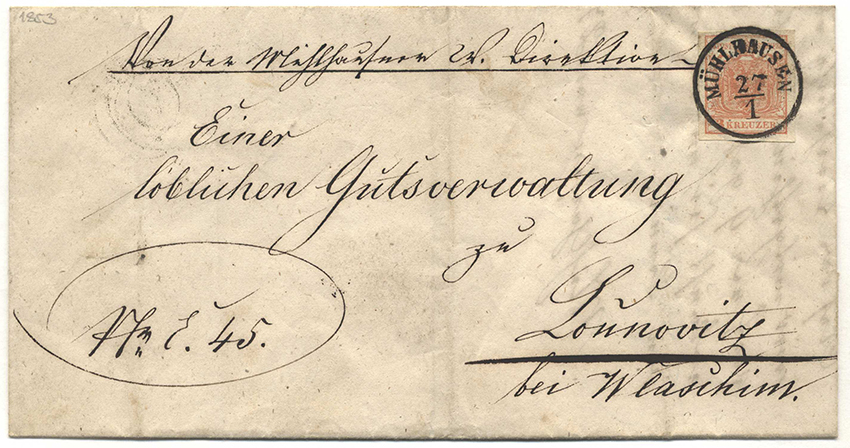 1853
Von der Mühlhausner W. Direktion
MÜHLHAUSEN
27
1
KREUZER
Einer
löblichen Gutsverwaltung
zu
Lounovitz
bei Wlaschim.
E. 45.